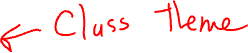 ← Class theme